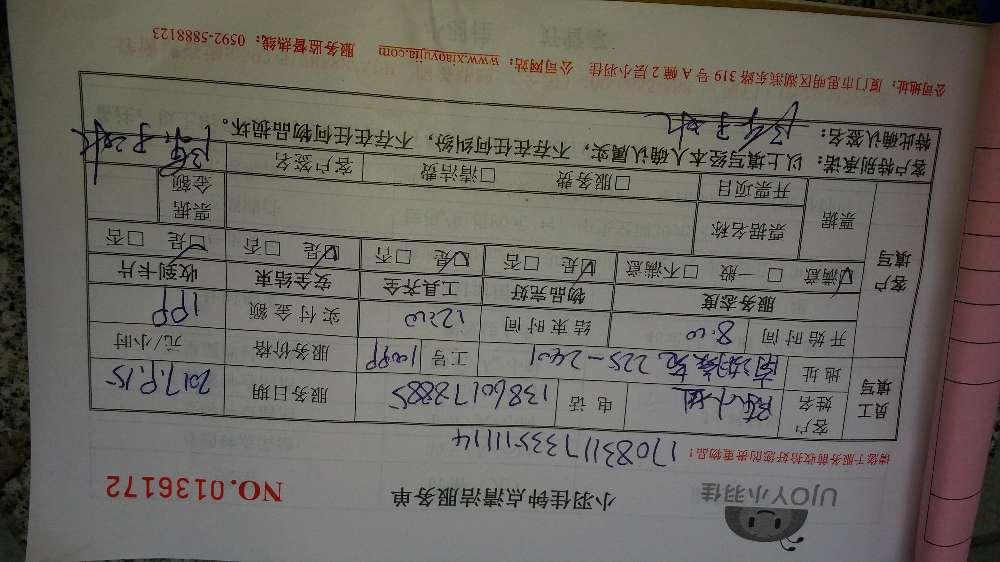 UJOY小羽佳
小羽佳钟点清洁服务单
NO.0136172
请您于服务前收拾好您的贵重物品!
17083117335111114
员工填写 客户姓名 陈小姐 电话 13860178885 服务日期 2017.9.15
地址 225-2401 工号 服务价格 元/小时
开始时间 8:00 结束时间 12:00 实付金额
客户填写 服务态度 物品完好 工具齐全 安全结束 收到卡片
满意 □一般 □不满意 是 □否 是 □否 是 □否 是 □否
票据 票据名称 票据金额
开票项目 □服务费 □清洁费 客户签名
客户特别承诺:以上填写经本人确认属实,不存在任何纠纷,不存在任何物品损坏。
特此确认签名:
公司地址:厦门市思明区湖滨东路319号A幢2层小羽佳 公司网站:www.xiaoyujia.com 服务监督热线:0592-5888123